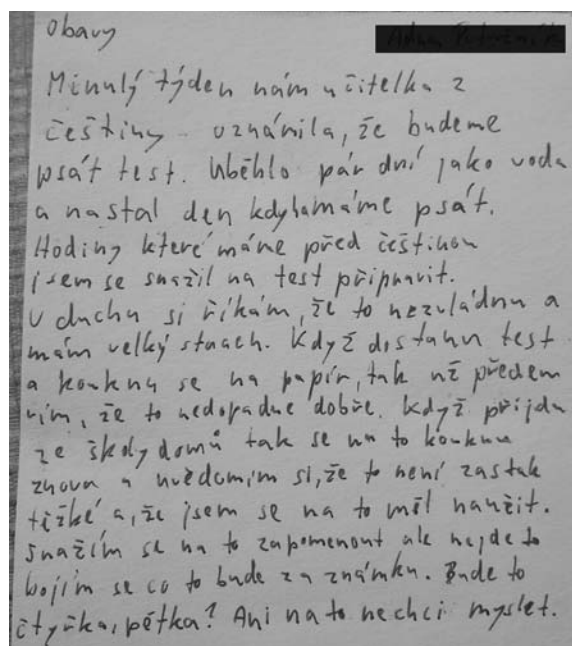 Obavy
Minulý týden nám učitelka z
češtiny oznámila, že budeme
psát test. Uběhlo pár dní jako voda
a nastal den kdy máme psát.
Hodiny které máme před češtinou
jsem se snažil na test připravit.
V duchu si říkám, že to nezvládnu a
mám velký strach. Když dostanu test
a kouknu se na papír, tak už předem
vím, že to nedopadne dobře. Když přijdu
ze školy domů tak se na to kouknu
znova a uvědomím si, že to není zas tak
těžké a, že jsem se na to měl naučit.
Snažím se na to zapomenout ale nejde to
bojím se co to bude za známku. Bude to
čtyřka, pětka? Ani na to nechci myslet.